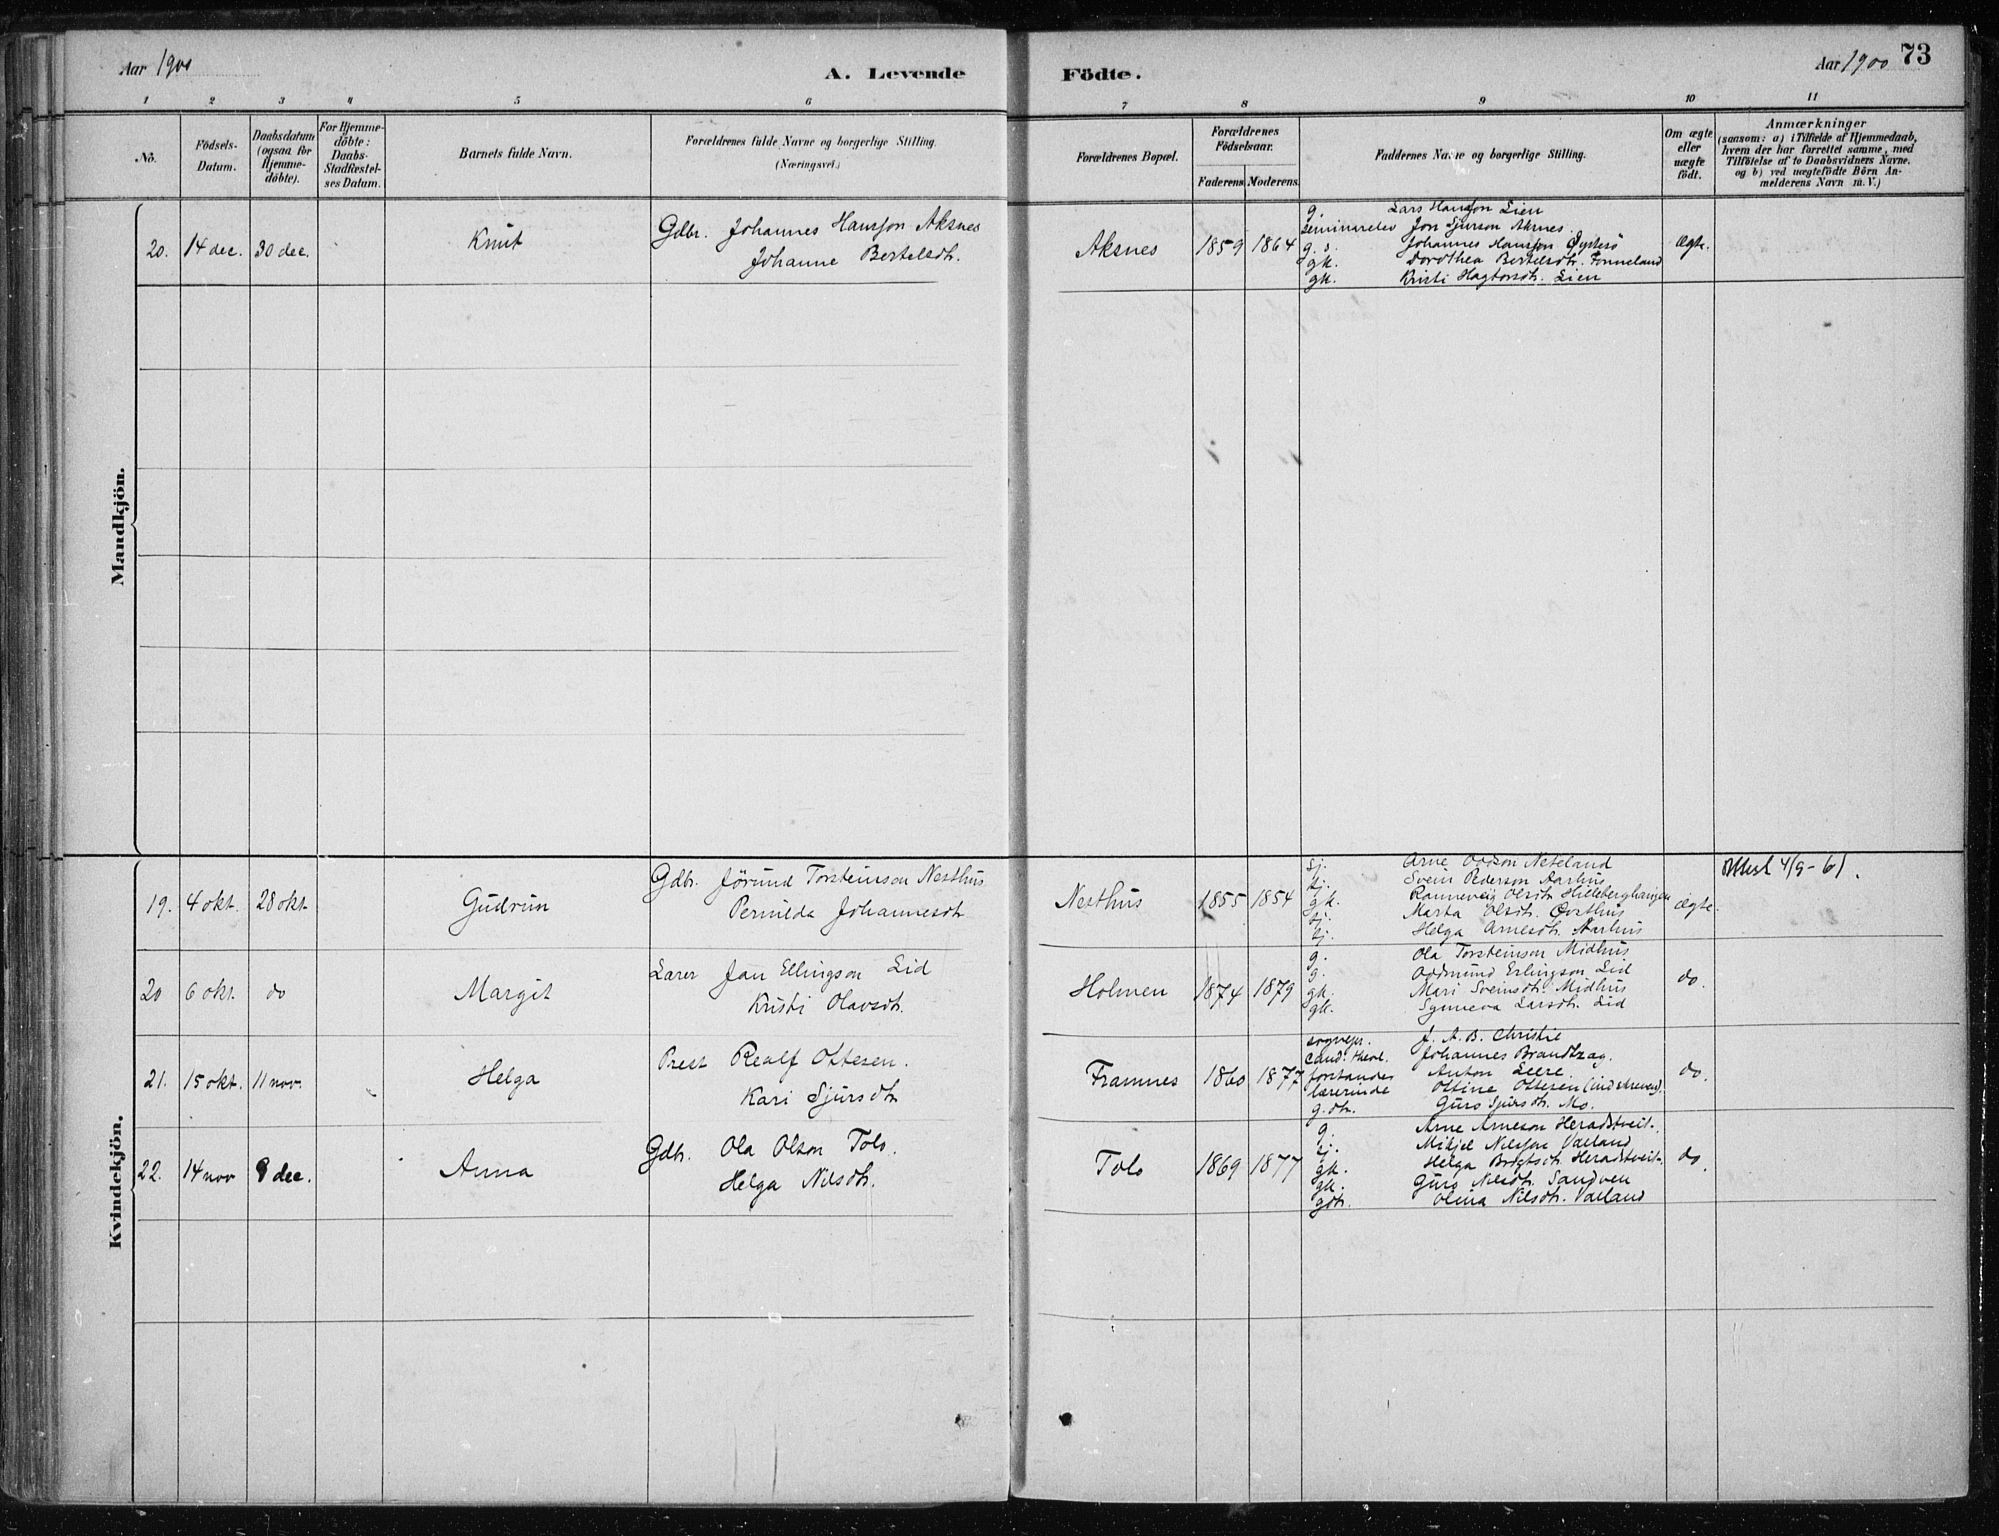 Aar 1900
A. Levende
Födte.
Aar 1900
73
1 2 3 4 5 6 7 8 9 10 11
No.
Födsels-
Datum.
Daabsdatum
(ogsaa for
Hjemme-
döbte).
For Hjemme-
döbte:
Daabs-
Stadfæstel-
ses Datum.
Barnets fulde Navn.
Forældrenes fulde Navne og borgerlige Stilling.
(Næringsvei.)
Forældrenes Bopæl.
Forældrenes
Födselsaar.
Faderens. Moderens.
Faddernes Navne og borgerlige Stilling.
Om ægte
eller
uægte
födt.
Anmærkninger
(saasom: a) i Tilfælde af Hjemmedaab,
hvem der har forrettet samme, med
Tilföielse af to Daabsvidners Navne.
og b) ved uægtefödte Börn An-
melderens Navn m. V.)
Mandkjön.
20. 14 dec. 30 dec. Knut
Gdbr. Johannes Hansson Aksnes
Johanne Bertelsdtr.
Aksnes 1859 1864
g. Lars Hansson Lien
seminarelev Jon Sjurson Aksnes
g. s. Johannes Hansson
gk. Dorothea Bertelsdtr. Fonneland
gk. Kristi Lien
Ægte.
Kvindekjön.
19. 4 okt. 28 okt. Gudrun
Gdbr. Jörund Torsteinson Nesthus
Pernilda Johannesdtr
Nesthus 1855 1854
Arne Oddson Neteland
Svein Pederson Aarhus
gk. Ranneveig Olsdtr
Marta Olsdtr. Övsthus
Helga Arnesdtr. Aarhus
ægte.
Attest 4/9-61.
20 6 okt. do Margit
Lærer Jan Ellingson Lid
Kristi Olavsdtr.
Holmen 1874 1879
g. Ola Torsteinson Midhus
g. Oddmund Erlingson Lid
gk. Mari Sveinsdtr. Midhus
gk. Synneva Larsdtr. Lid
do.
21. 15 okt. 11 nov. Helga
Prest Realf Ottesen.
Kari Sjursdtr
Framnes 1860 1877
sognepr. J. A. B. Christie
Cand. theol. Johannes Brandtzæg.
forstander Anton Leere
lærerinde Ottine Ottesen (indskreven).
g. dtr. Guro Sjursdtr. Mo.
do.
22. 14 nov 9 dec. Anna
Gdbr. Ola Olson Tolo.
Helga Nilsdtr.
Tolo 1869 1877
g. Arne Arneson Heradstveit.
Mikjel Nilsson Vaeland
gk. Helga Heradstveit.
gk. Guro Nilsdtr. Sandven
gdtr. Olina Nilsdtr. Vaeland
do.